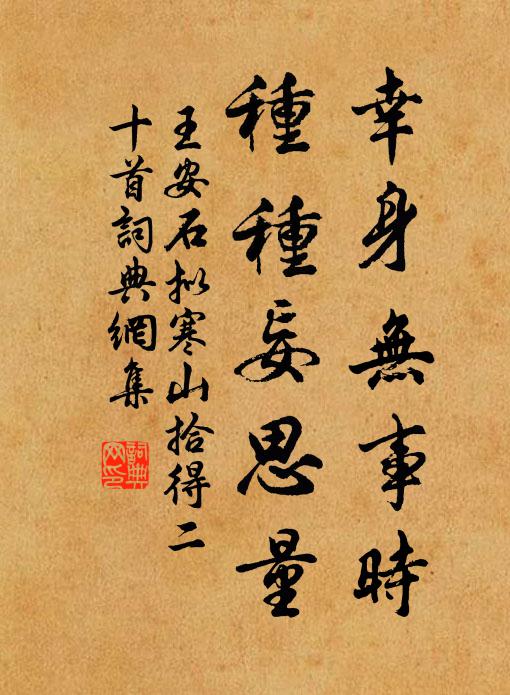 幸身無事時
種種妄思量
王安石拟寒山拾得二
十首詞典網集